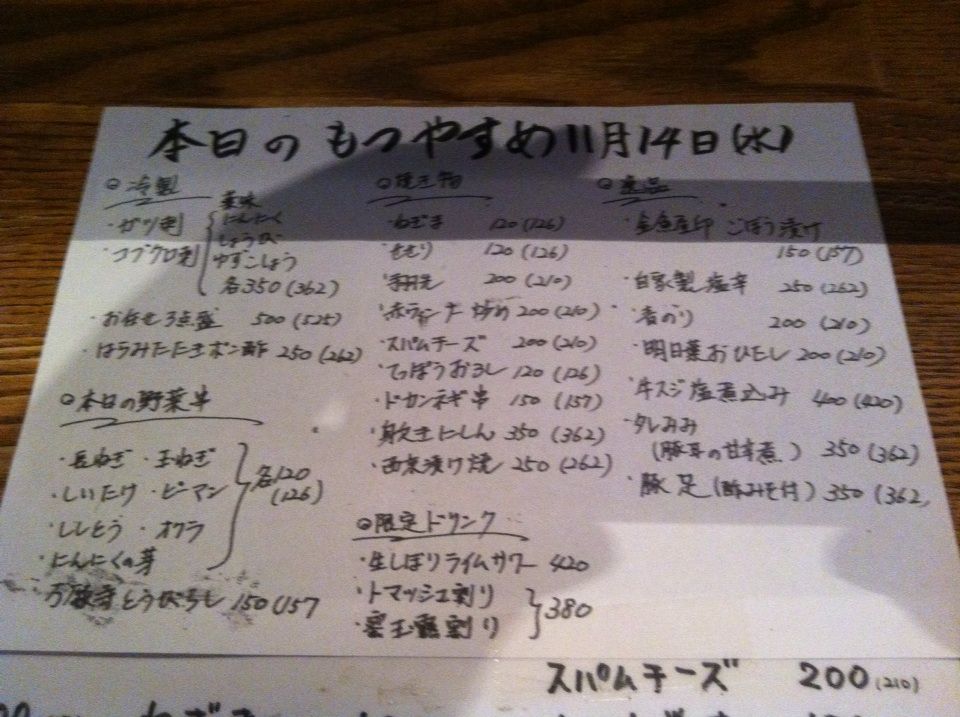 本日の もつやすめ 11月14日(水)
◎冷製
・ガツ刺
・コブクロ刺
薬味
にんにく
しょうが
ゆずこしょう
各350(362)
・お任せ3点盛 500(525)
・はらみたたきポン酢 250(262)
◎本日の野菜串
・長ねぎ ・玉ねぎ
・しいたけ ・ピーマン
・ししとう ・オクラ
・にんにくの芽
各120
(126)
万願寺とうがらし 150(157
◎焼き物
・ねぎま 120(126)
・せせり 120(126)
・手羽先 200(210)
・赤ウィンナー炒め 200(210)
・スパムチーズ 200(210)
・てっぽうおろし 120(126)
・ドカンネギ串 150(157)
・身欠きにしん 350(362)
・西京漬け焼 250(262)
◎限定ドリンク
・生しぼりライムサワー 420
・トマッシュ割り
・玉露割り
380
◎逸品
ごぼう漬け
150(157)
・自家製塩辛 250(262)
・青のり 200(210)
・明日葉おひたし 200(210)
・牛スジ塩煮込み 400(420)
・タレミミ
(豚耳の甘辛煮) 350(362)
・豚足(酢みそ付) 350(362,
スパムチーズ 200(210)